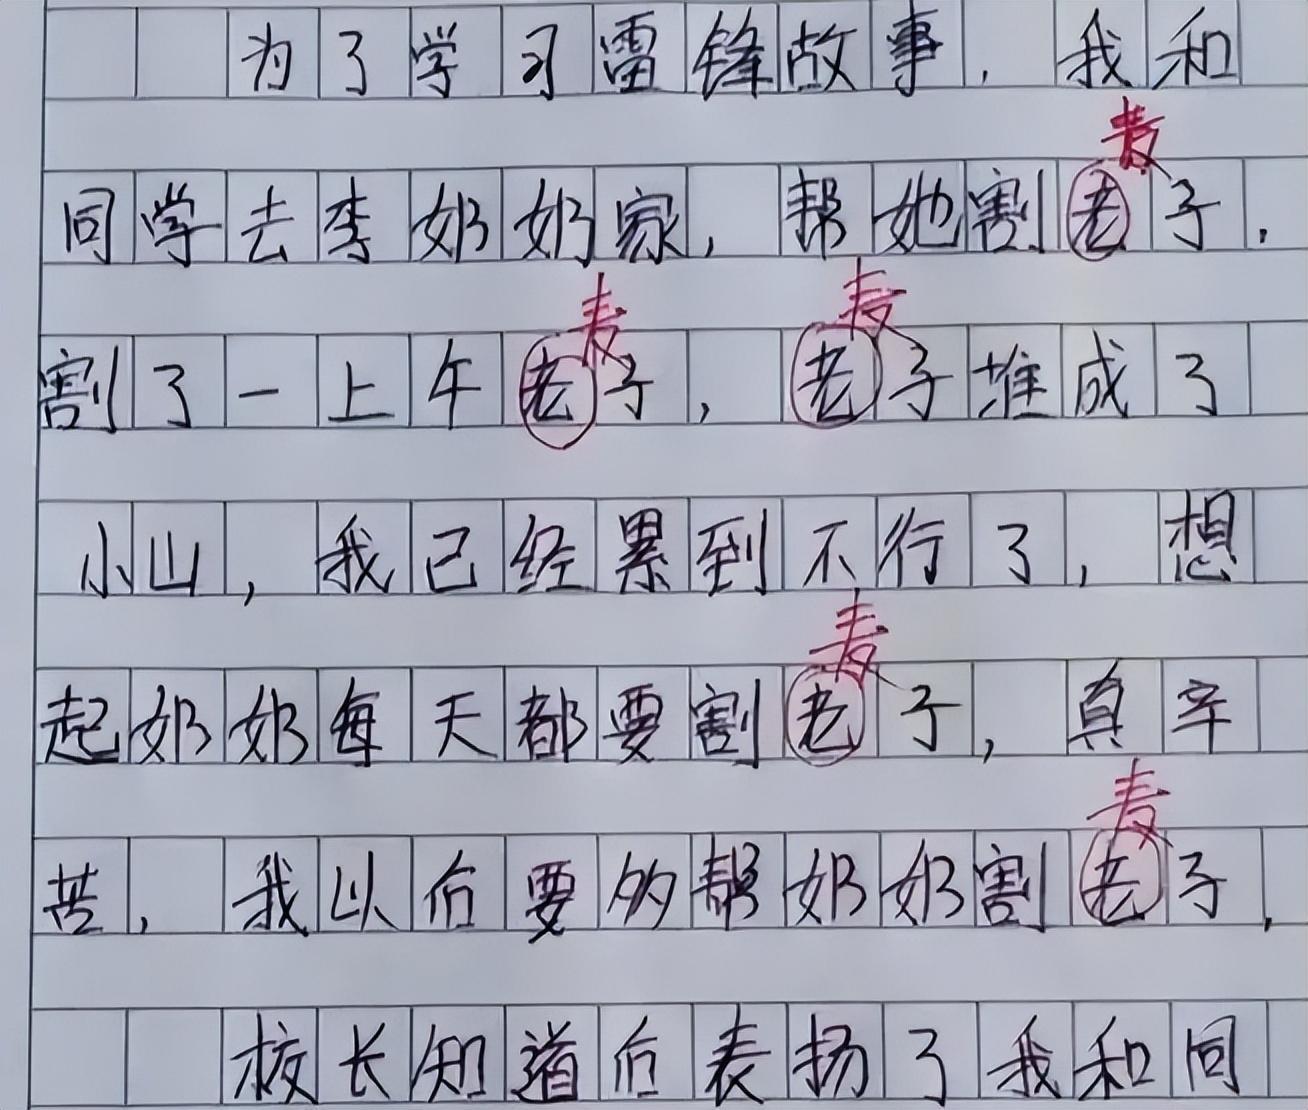 为了学习雷锋故事，我和
麦
同学去李奶奶家，帮她割老子，
麦 麦
割了一上午老子，老子堆成了
小山，我已经累到不行了，想
麦
起奶奶每天都要割老子，真辛
麦
苦，我以后要多帮奶奶割老子，
校长知道后表扬了我和同